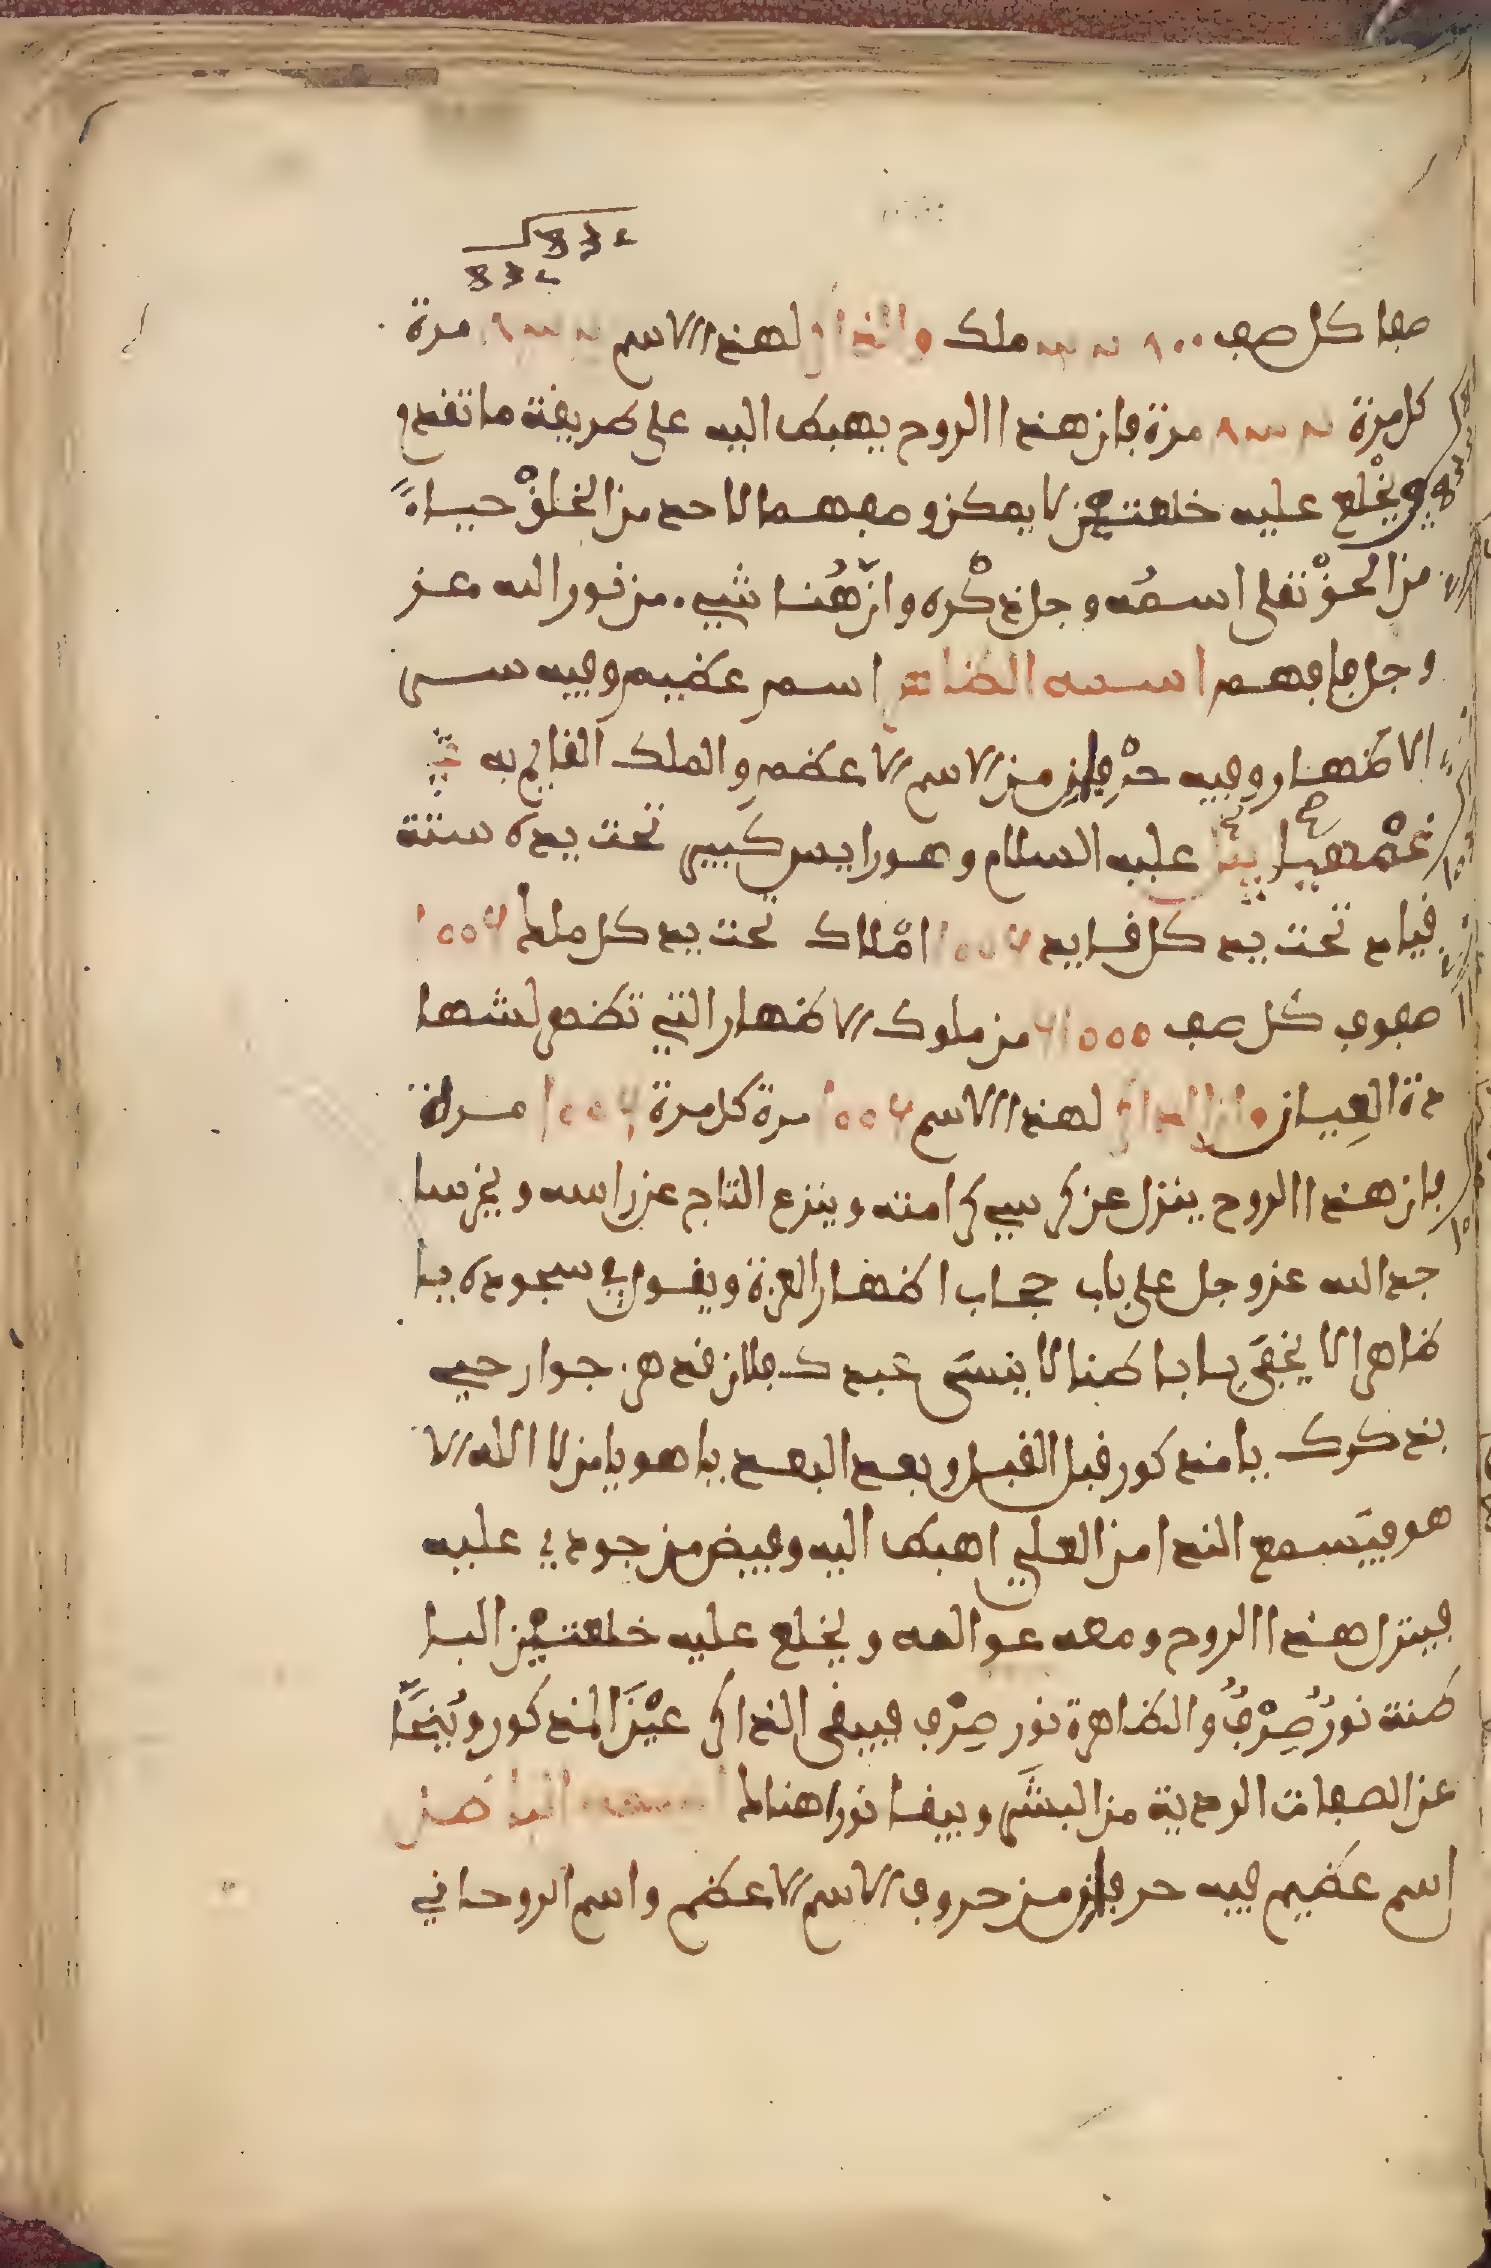 صفا كل صف ملك والذاكر لهذا الاسم مرة
كل مرة مرة فان هذا الروح يهبط اليه على طريقة ما تقدم
ويخلع عليه خلعتين لا يمكن وصفهما لاحد من الخلق حياءً
من الحق تعلى اسمه وجل ذكره وان هنا شيء من نور الله عز
وجل فافهم اسمه الظاهر اسم عظيم وفيه سر
الاظهار وفيه حرفان من الاسم الاعظم والملك القايم به
عليه السلام وهو رايس كبير تحت يده ستة
قياد تحت يد كل قايد ١٥٥٦ املاك تحت يد كل ملك ١٥٥٦
صفوف كل صف من ملوك الاظهار التي تظهر لشها
دة العيان وان الذاكر لهذا الاسم ١٥٥٦ مرة كل مرة ١٥٥٦ مراة
فان هذا الروح ينزل عن كرسي كرامته وينزع التاج عن راسه ويخر سا
جد الله عز وجل على باب حجاب اظهار العزة ويقول في سجوده يا
ظاهرا لا يخفى يا باطنا لا ينسى عبدك فلان قد هز جوارحي
بذكرك يا مذكور قبل القبل وبعد البعد يا هو يا من لا اله الا
هو فيسمع الندا من العلي اهبط اليه وفيض من جودي عليه
فينزل هذا الروح ومعه عوالمه ويخلع عليه خلعتين البا
طنة نورٌ صِرْفٌ والظاهرة نور صِرْف فيبقى الذاكر عَيْنَ المذكور ويُنحَّا
عن الصفات الردية من البشر ويبقا نورا هنالك اسمه الباطن
اسم عظيم فيه حرفان من حروف الاسم الاعظم واسم الروحاني